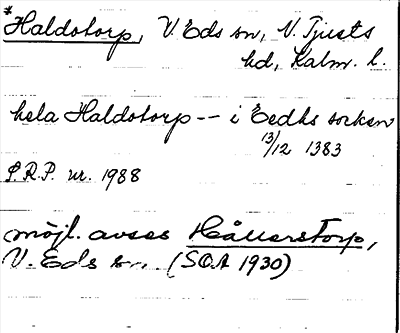 *Haldotorp, V. Eds sn, N. Tjusts
hd, Kalm. l.
hela Haldotorp -- i Eedhs soken
13/12 1383
S.R.P. nr. 1988
möjl. avses Hållerstorp,
V. Eds sn. (SOA 1930)